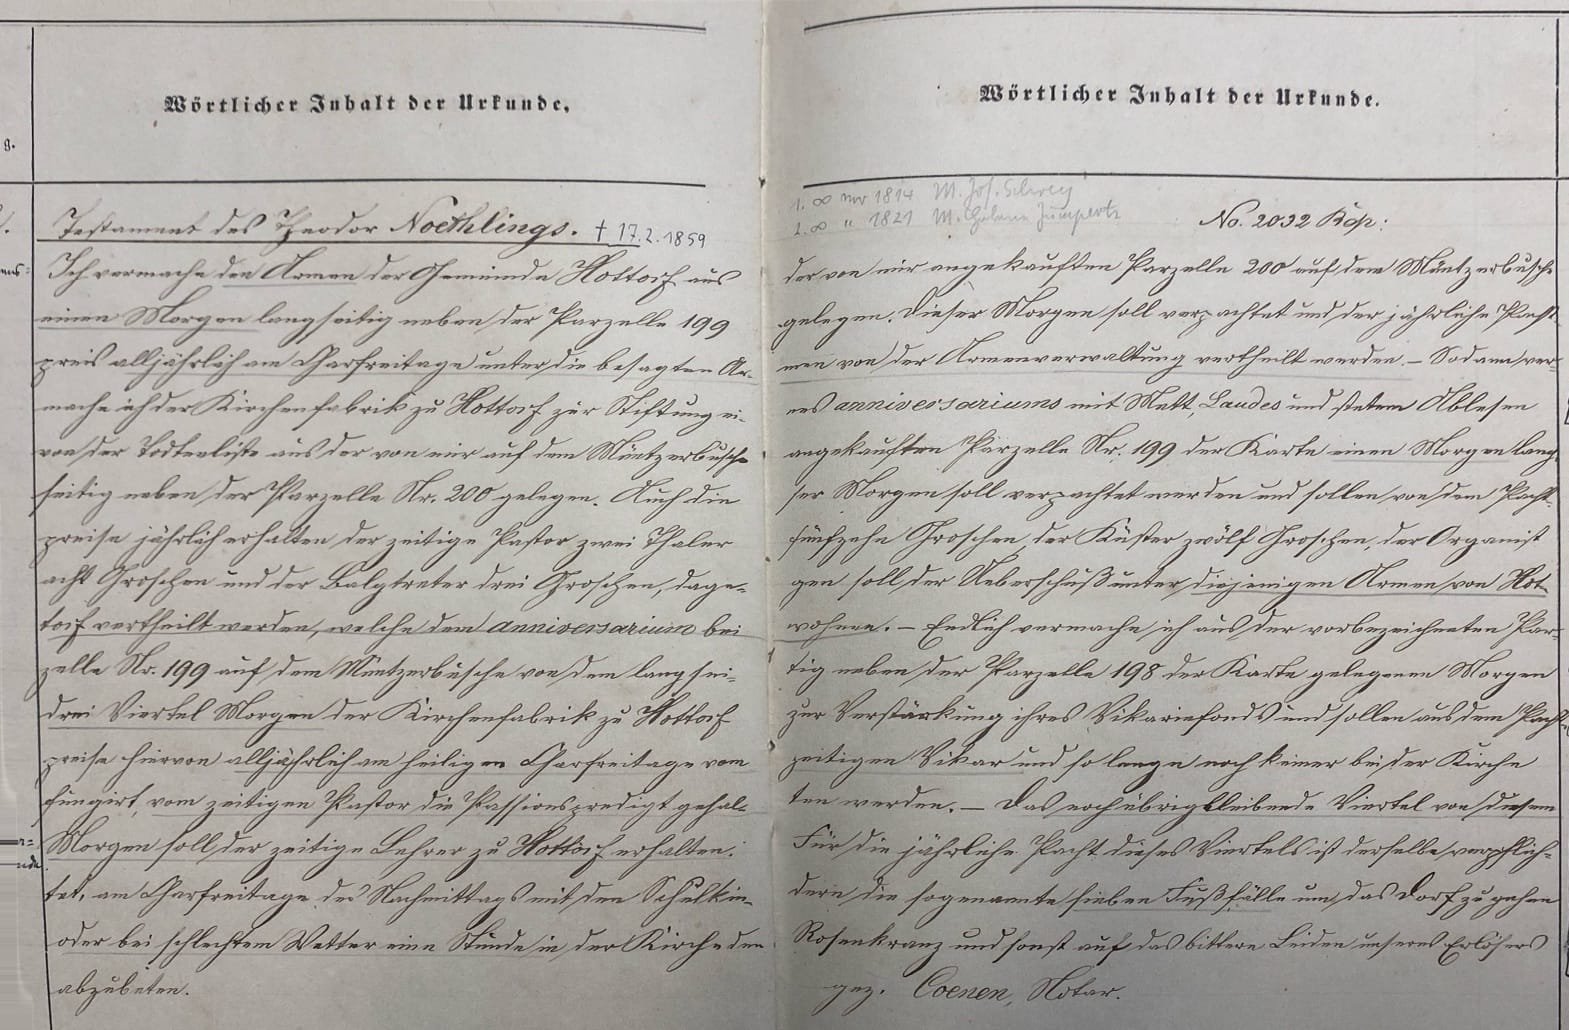 Wörtlicher Inhalt der Urkunde.
Wörtlicher Inhalt der Urkunde.
g.
1. ∞ vor 1814 M. Jos. Schrey
2. ∞ " 1821 M. Helena Jumpertz
Testament des Theodor Noethlings. † 17.2.1859
No. 2032 Rep:
Ich vermache den Armen der Gemeinde Hottorf aus
der von mir angekauften Parzelle 200 auf dem Müntzerbusche
einen Morgen langseitig neben der Parzelle 199
gelegen. Dieser Morgen soll verpachtet und der jährliche Pacht-
preis alljährlich am Charfreitage unter die besagten Ar-
men von der Armenverwaltung vertheilt werden. – Sodann ver-
mache ich der Kirchenfabrik zu Hottorf zur Stiftung ei-
nes anniversariums mit Mett, Laudes und stetem Ablesen
von der Todtenliste aus der von mir auf dem Müntzerbusche
angekauften Parzelle Nr. 199 der Karte einen Morgen lang-
seitig neben der Parzelle Nr. 200 gelegen. Auch die-
ser Morgen soll verpachtet werden und sollen von dem Pacht-
preise jährlich erhalten der zeitige Pastor zwei Thaler
fünfzehn Groschen, der Küster zwölf Groschen, der Organist
acht Groschen und der Balgtreter drei Groschen, dage-
gen soll der Ueberschuß unter diejenigen Armen von Hot-
torf vertheilt werden, welche dem anniversarium bei
wohnen. – Endlich vermache ich aus der vorbezeichneten Par-
zelle Nr. 199 auf dem Müntzerbusche von dem langsei-
tig neben der Parzelle 198 der Karte gelegenen Morgen
drei Viertel Morgen der Kirchenfabrik zu Hottorf
zur Verstärkung ihres Vikariefonds und sollen aus dem Pacht-
preise hiervon alljährlich am heiligen Charfreitage vom
zeitigen Vikar und so lange noch keiner bei der Kirche
fungirt, vom zeitigen Pastor die Passionspredigt gehal-
ten werden. – Das noch übrigbleibende Viertel von diesem
Morgen soll der zeitige Lehrer zu Hottorf erhalten.
Für die jährliche Pacht dieses Viertels ist derselbe verpflich-
tet, am Charfreitage des Nachmittags mit den Schulkin-
dern die sogenannte sieben Fußfälle um das Dorf zu gehen
oder bei schlechtem Wetter eine Stunde in der Kirche den
Rosenkranz und sonst auf das bittere Leiden unseres Erlösers
abzubeten.
gez. Coenen, Notar.